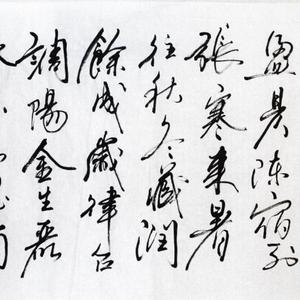 盈昃陳宿列
張寒来暑
往秋冬藏潤
餘成歲律
調陽金生麗